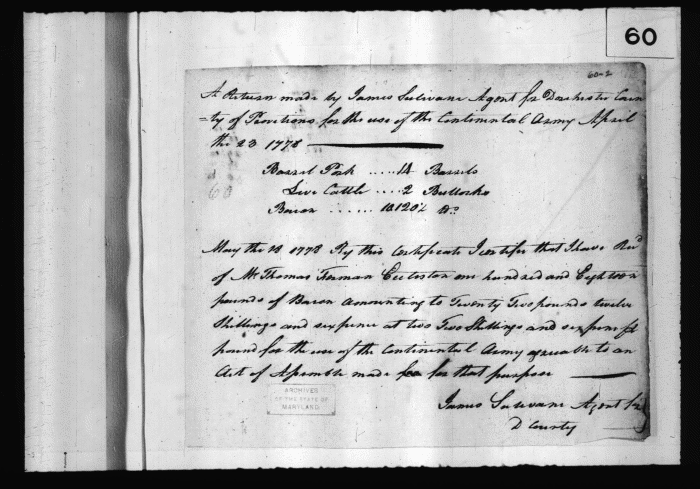 60
60-2
A Return made by James Sulivane Agent for Dorchester Coun
=ty of Provitions for the use of the Continental Army April
the 23 1778
Barrel Pork ..... 14 Barrels
Live Cattle .... 2 Bullocks
Bacon ...... 10120½ lb
60
May the 18 1778 By this Certificate I certifie that I have Recd
of Mr Thomas Firman Eccleston one hundred and Eighteen
pounds of Bacon amounting to Twenty Two pounds twelve
Shillings and sixpence at two Two Shillings and sixpence pr
pound for the use of the Continental Army agreeable to an
Act of Assemble made for for that purpose
James Sulivane Agent for
D County
ARCHIVES
OF THE STATE OF
MARYLAND